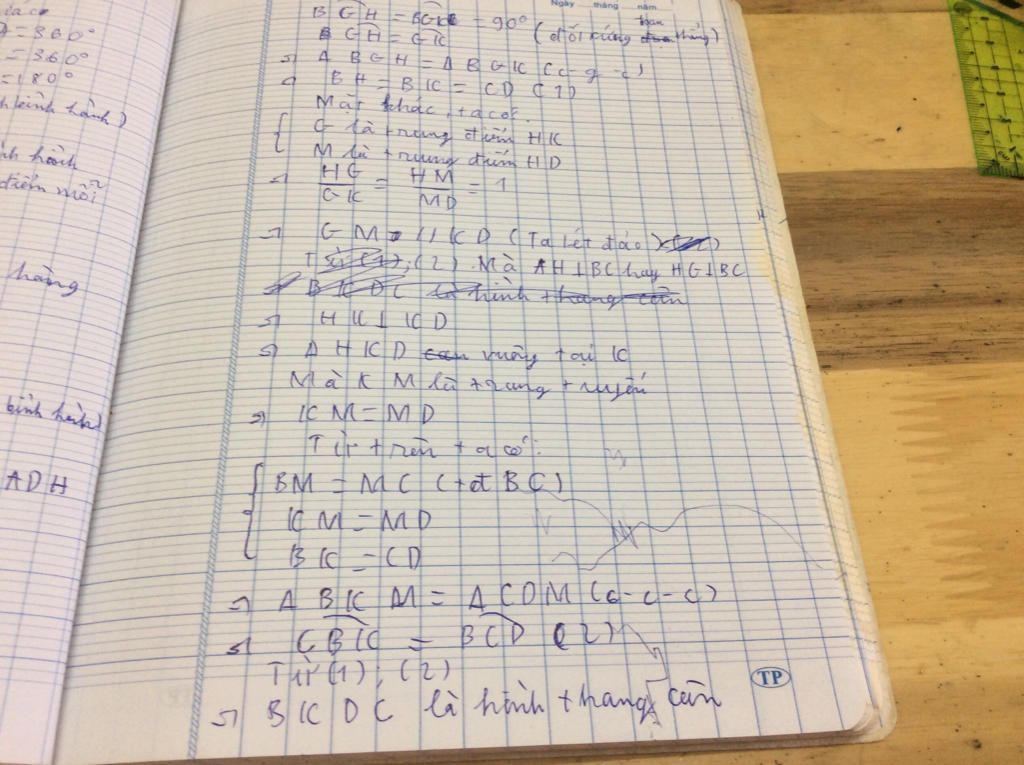 = 360°
= 360°
= 180°
bình hành)
hành
điểm mỗi
hàng
bình hành)
ADH
Ngày tháng năm
BGH = BGK = 90° (đối xứng đoạn thẳng)
BGH = GK
=> Δ BGH = Δ BGK (c-g-c)
=> BH = BK = CD (1)
Mặt khác, ta có:
G là trung điểm HK
M là trung điểm HD
=> HG/GK = HM/MD = 1
=> GM // KD (Ta lét đảo)
Từ (1), (2). Mà AH ⊥ BC hay HG ⊥ BC
=> BKDC là hình thang cân
=> HK ⊥ KD
=> Δ HKD vuông tại K
Mà KM là trung tuyến
=> KM = MD
Từ trên ta có:
BM = MC (tđ BC)
KM = MD
BK = CD
=> Δ BKM = Δ CDM (c-c-c)
=> CBK = BCD (2)
Từ (1), (2)
=> BKDC là hình thang cân
TP